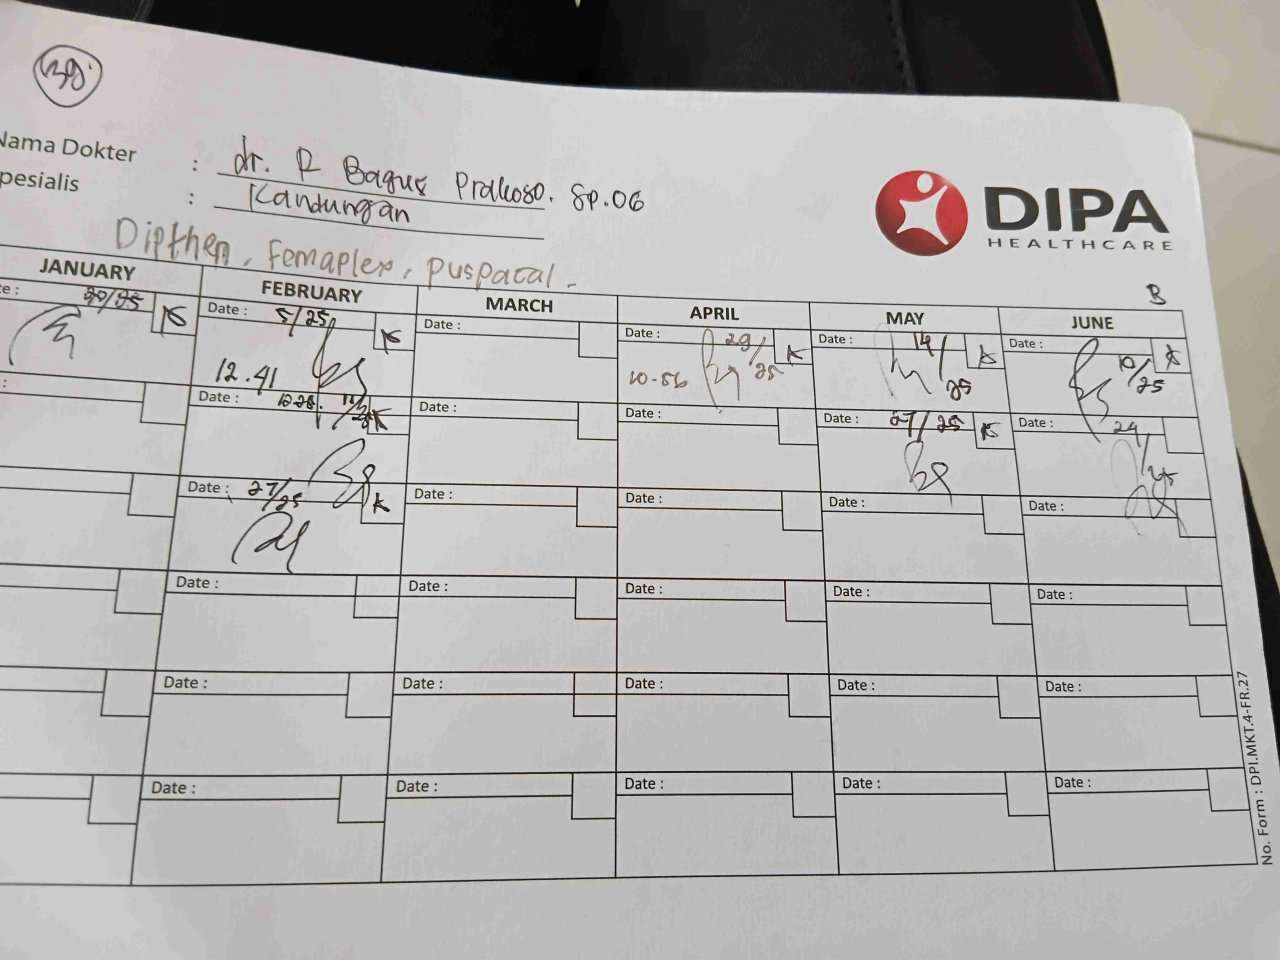 39.
Nama Dokter : dr. R Bagus Prakoso. Sp.OG
pesialis : Kandungan
DIPA
HEALTHCARE
Dipthen, Femaplex, puspacal.
B
JANUARY FEBRUARY MARCH APRIL MAY JUNE
te: 29/25 K Date : 5/25 K Date : Date : 29/25 K Date : 14/25 K Date : 10/25 K
12.41 10-56
: Date : 11/25 K Date : Date : Date : 27/25 K Date : 24/25
Date : 27/25 K Date : Date : Date : Date :
Date : Date : Date : Date : Date :
Date : Date : Date : Date : Date :
Date : Date : Date : Date : Date :
No. Form : DPI.MKT.4-FR.27